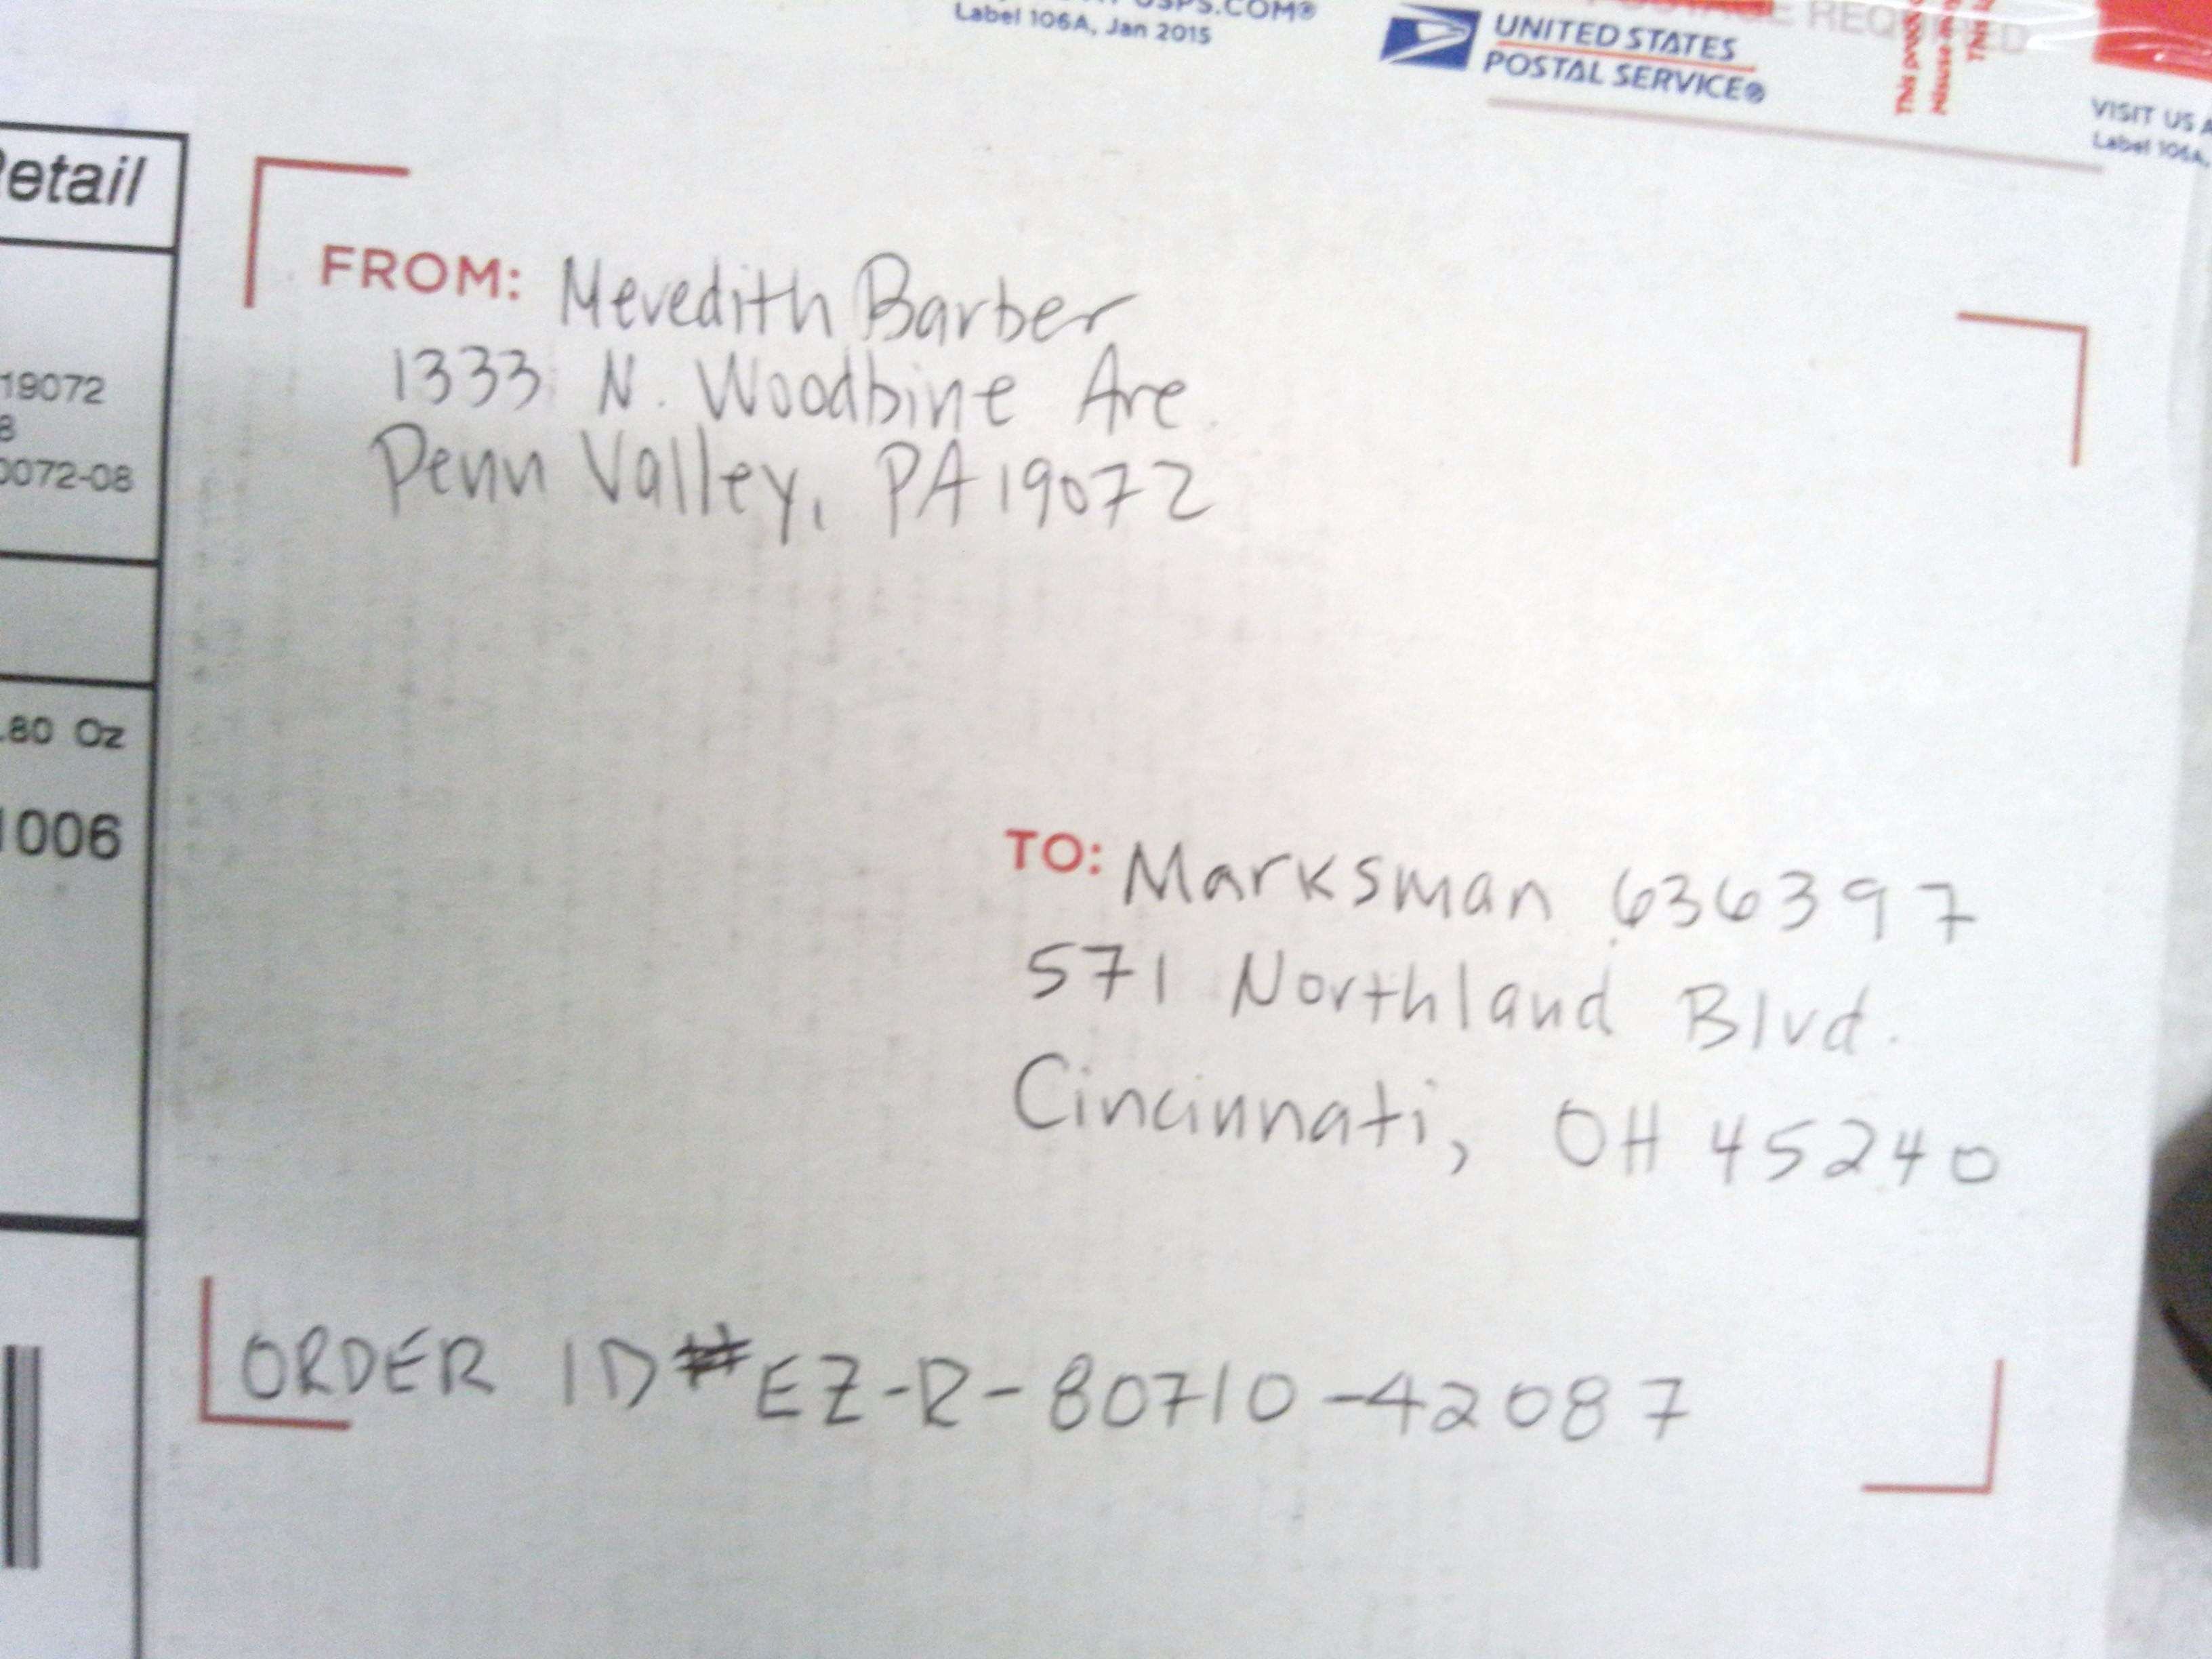 USPS.COM®
Label 106A, Jan 2015
UNITED STATES
POSTAL SERVICE®
REQUIRED
VISIT US
Label 106A,
etail
19072
8
0072-08
.80 Oz
1006
FROM: Meredith Barber
1333 N. Woodbine Ave.
Penn Valley, PA 19072
TO: Marksman 636397
571 Northland Blvd.
Cincinnati, OH 45240
ORDER ID# EZ-R-80710-42087